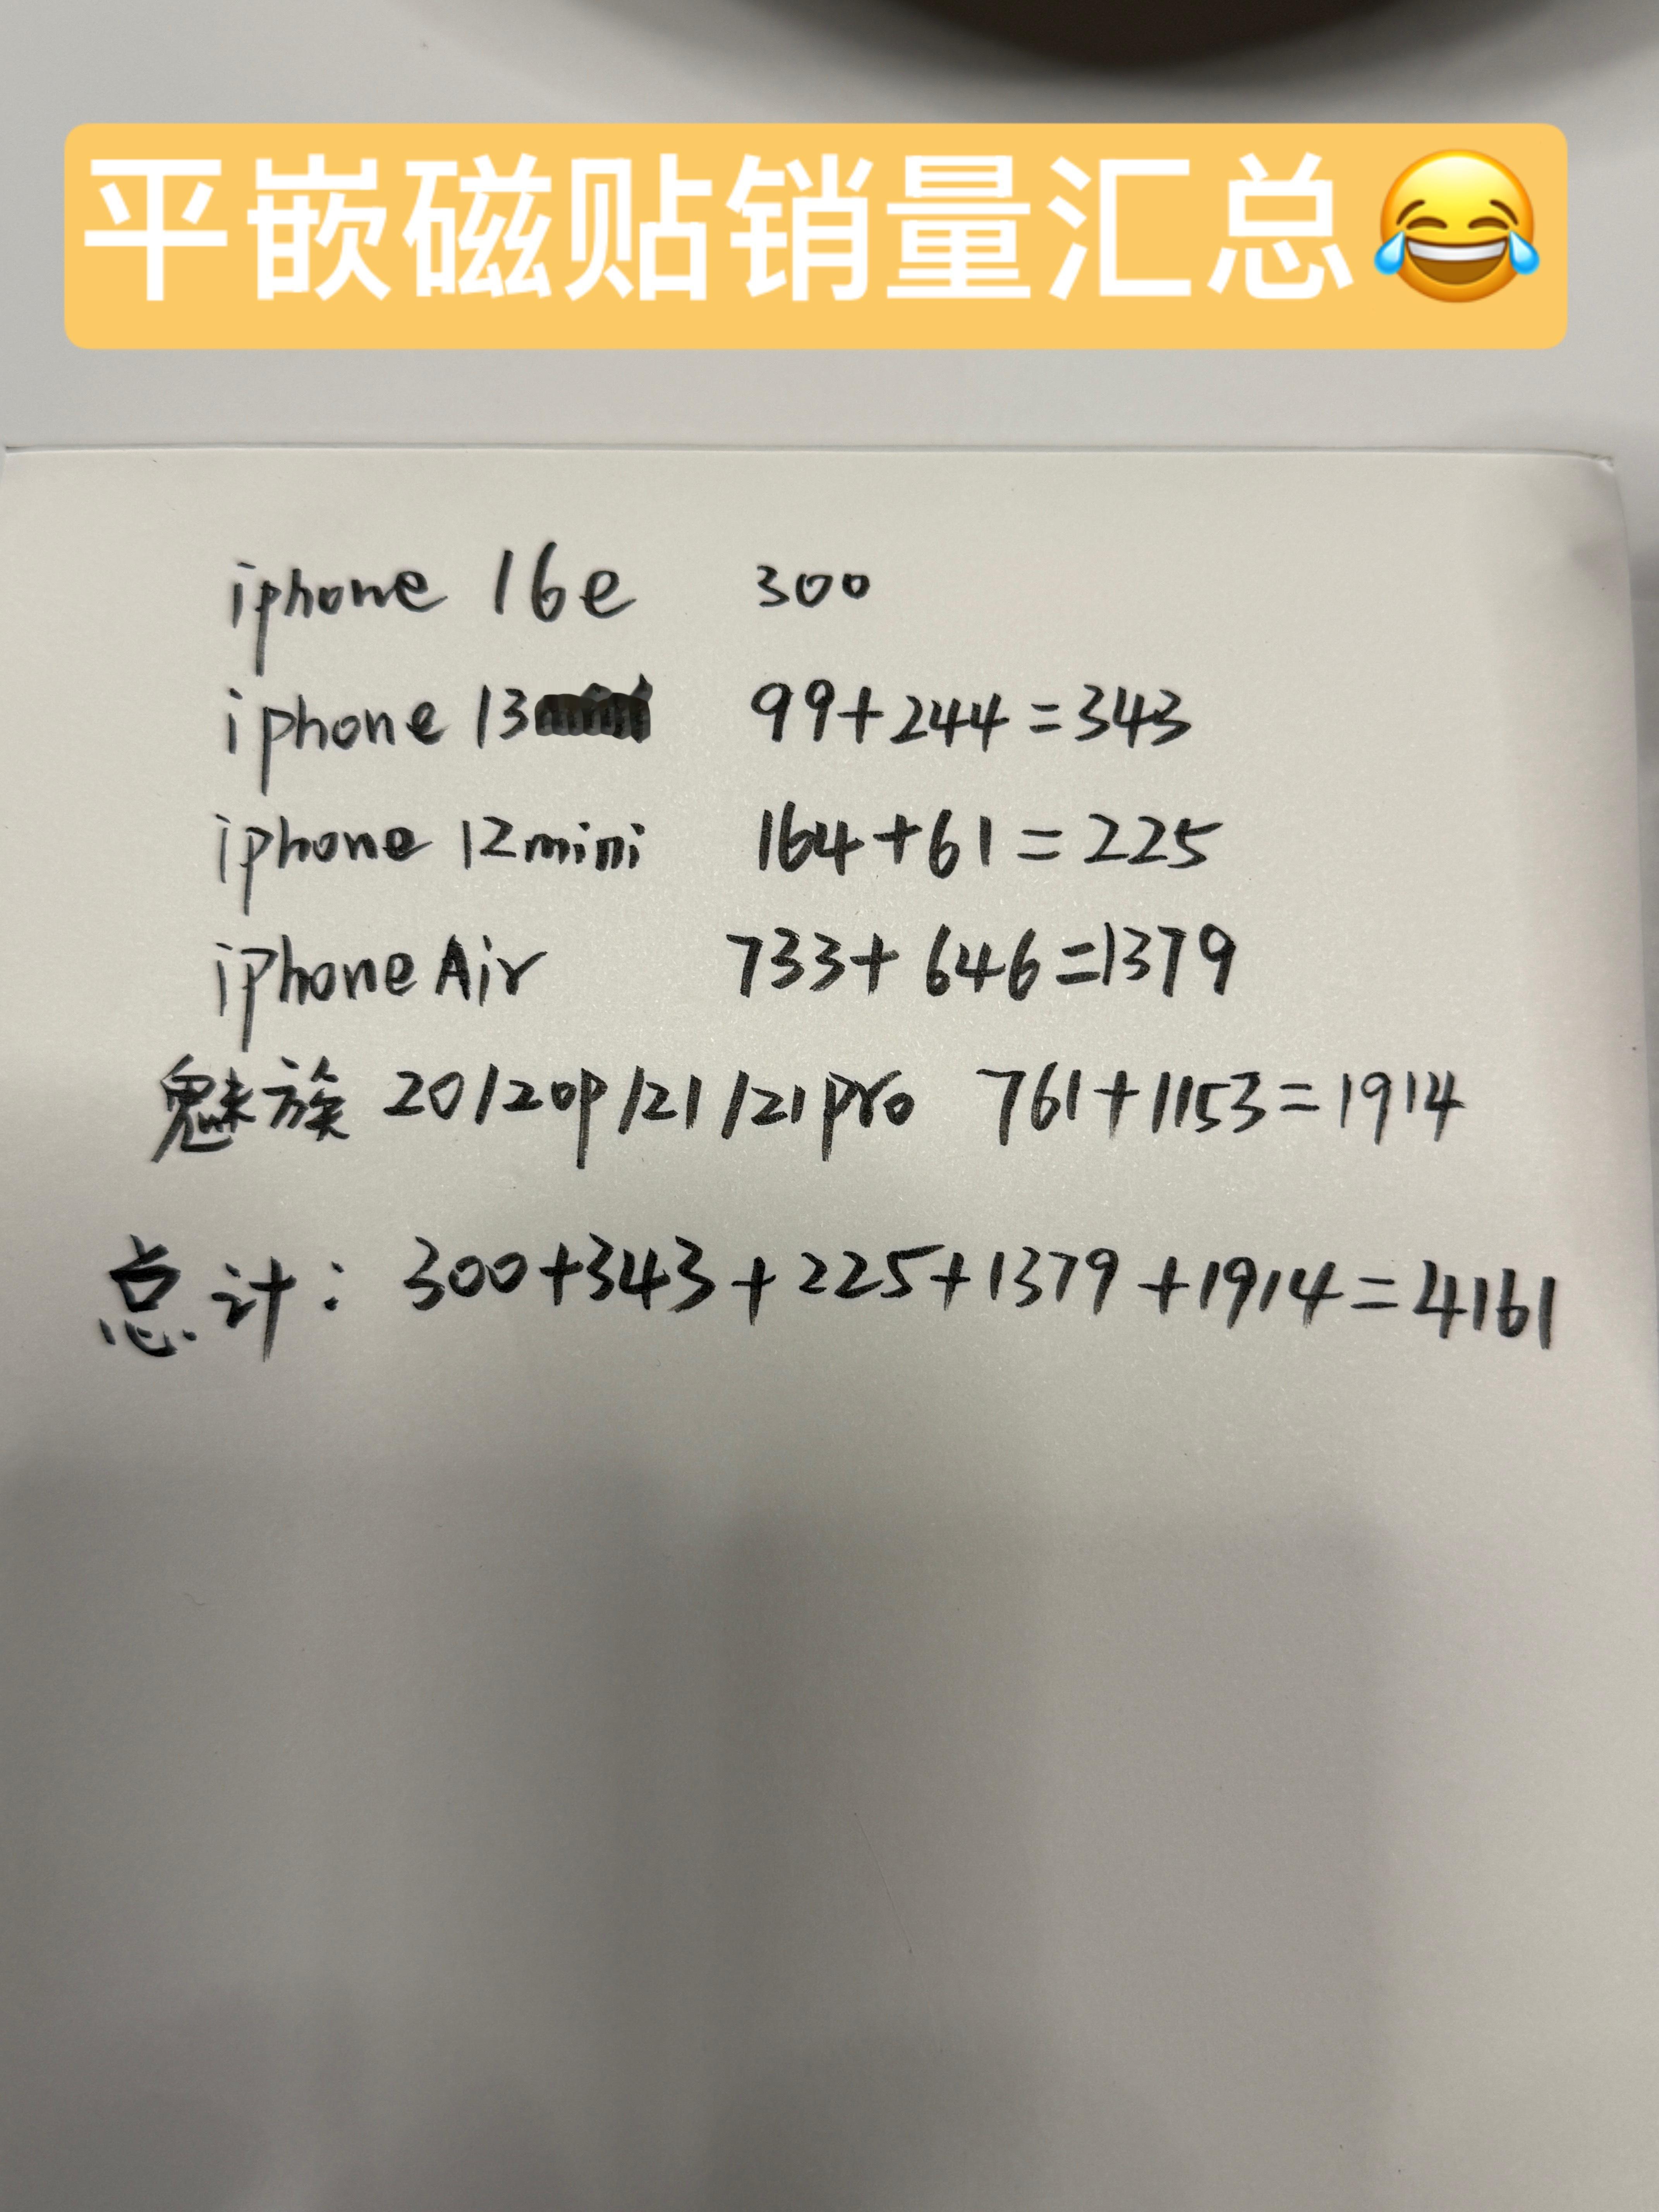 平嵌磁贴销量汇总😂
iphone 16e 300
iphone 13 99+244=343
iphone 12mini 164+61=225
iphone Air 733+646=1379
魅族 20/20p/21/21pro 761+1153=1914
总计: 300+343+225+1379+1914=4161